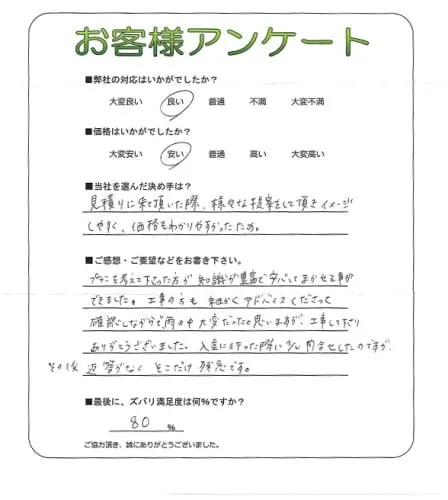 お客様アンケート
■弊社の対応はいかがでしたか？
大変良い 良い 普通 不満 大変不満
■価格はいかがでしたか？
大変安い 安い 普通 高い 大変高い
■当社を選んだ決め手は？
見積りに来て頂いた際、様々な提案をして頂きイメージ
しやすく、価格もわかりやすかったため。
■ご感想・ご要望などをお書き下さい。
プランを考えて下さった方が知識が豊富で安心してまかせる事が
できました。工事の方も細かくアドバイスくださって
確認しながらで雨の中大変だったと思いますが、工事して下さり
ありがとうございました。入金に行った際に少し問合せしたのですが、
その後 返答がなく そこだけ残念です。
■最後に、ズバリ満足度は何％ですか？
80 ％
ご協力頂き、誠にありがとうございました。